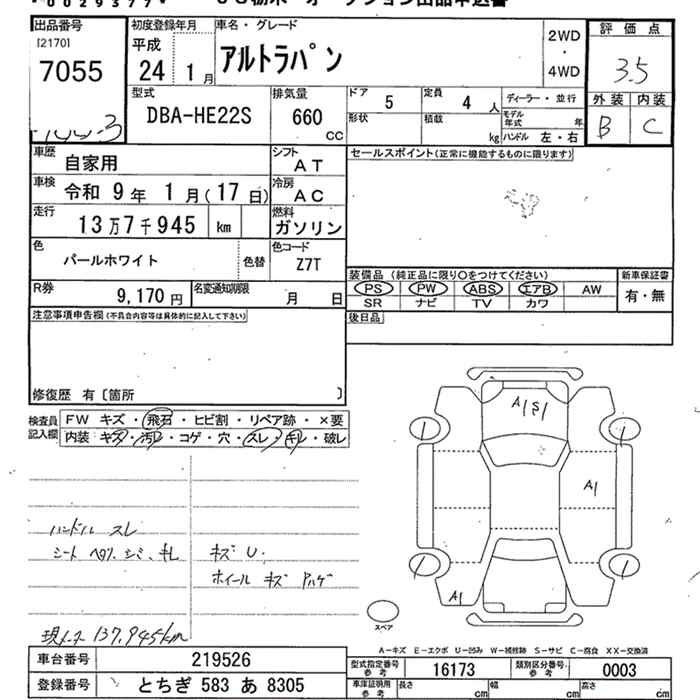 00293779
出品番号 初度登録年月 車名・グレード 2WD ・ 4WD 評価点
[2170]
7055 平成 24 1月 アルトラパン 3.5
型式 排気量 ドア 5 定員 4人 ディーラー・並行 外装 内装
DBA-HE22S 660 CC 形状 積載 kg モデル年式 年 B C
ハンドル 左・右
車歴 自家用 シフト AT セールスポイント(正常に機能するものに限ります)
車検 令和 9年 1月(17日) 冷房 AC
走行 13万7千945 km 燃料 ガソリン
色 パールホワイト 色替 色コード Z7T
装備品(純正品に限り○をつけてください) 新車保証書
PS PW ABS エアB AW 有・無
SR ナビ TV カワ
R券 9,170円 名変通知期限 月 日
注意事項申告欄(不具合内容等は具体的に記入して下さい) 後日品
修復歴 有〔箇所 〕
検査員記入欄 FW キズ・飛石・ヒビ割・リペア跡・×要
内装・キズ・汚レ・コゲ・穴・スレ・キレ・破レ
A1 S1
A1
ハンドル スレ
シート ヘタリ シミ キレ キズ U.
ホイール キズ ハゲ
A1
スペア
現メータ 137,945km
A-キズ E-エクボ U-凹み W-補修跡 S-サビ C-腐食 XX-交換済
車台番号 219526 型式指定番号 参考 16173 類別区分番号 参考 0003
登録番号 とちぎ 583 あ 8305 車庫証明用 参考 長さ cm 幅 cm 高さ cm